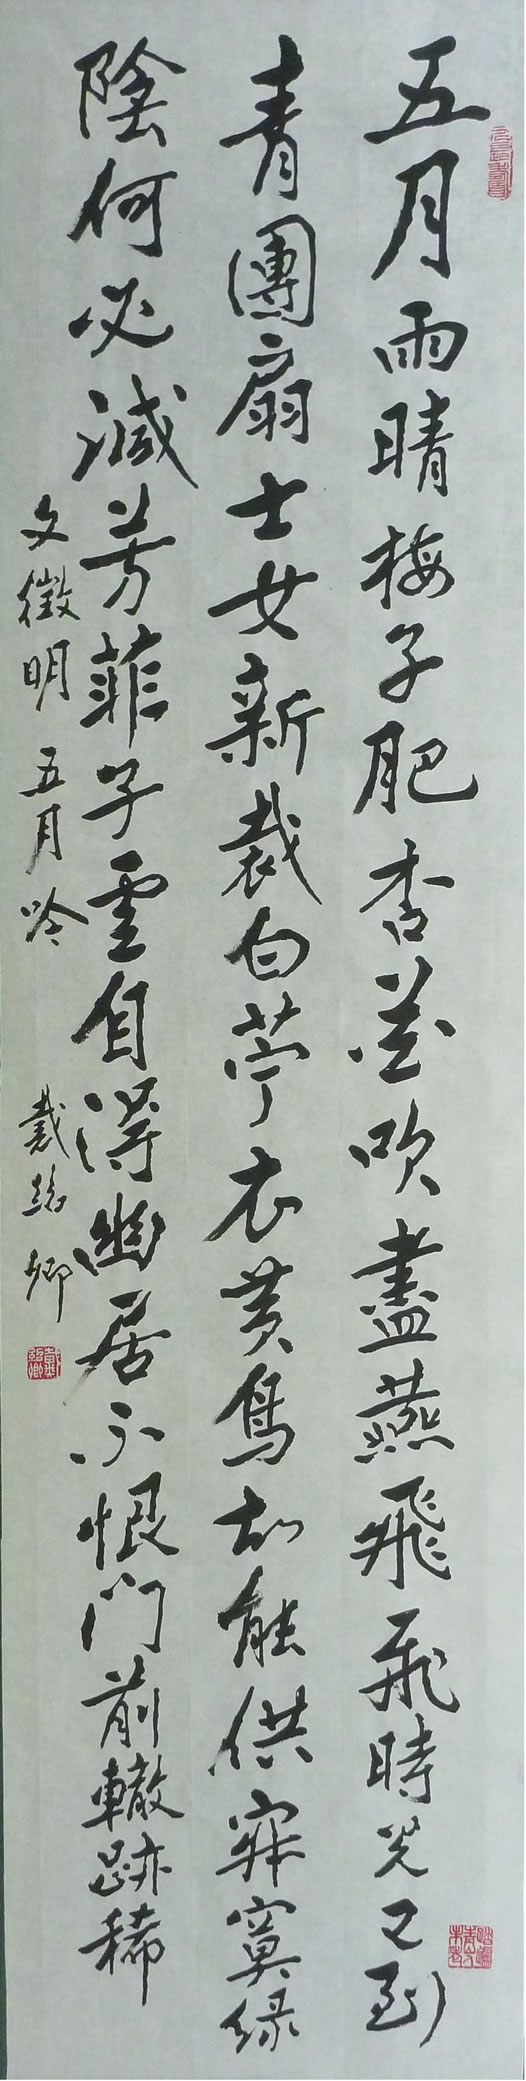 五月雨晴梅子肥杏花吹盡燕飛飛時光又到
青團扇士女新裁白苧衣黃鳥却能供寂寞綠
陰何必減芳菲子雲自得幽居不恨門前轍跡稀
文徵明 五月吟 戴紹卿